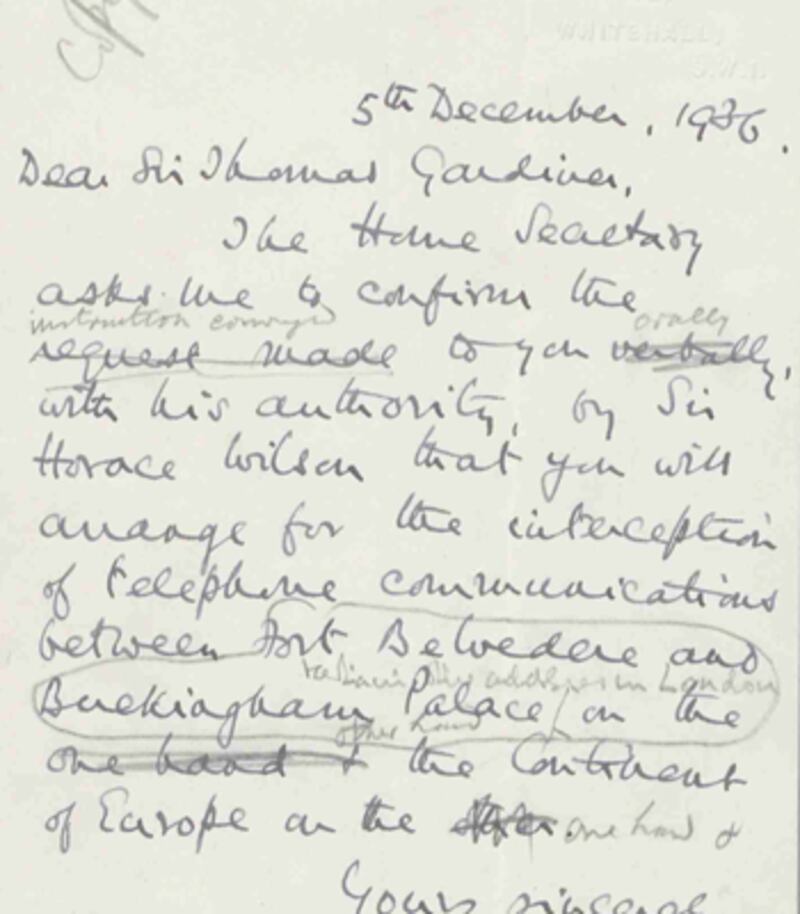 Copy
WHITEHALL,
S.W.1.
5th December, 1936.
Dear Sir Thomas Gardiner,
The Home Secretary
asks me to confirm the
instruction conveyed orally
request made to you verbally,
with his authority, by Sir
Horace Wilson that you will
arrange for the interception
of telephone communications
between Fort Belvedere and
addresses in London
Buckingham Palace / on the
other hand
one hand & the Continent
of Europe on the other. one hand &
Yours